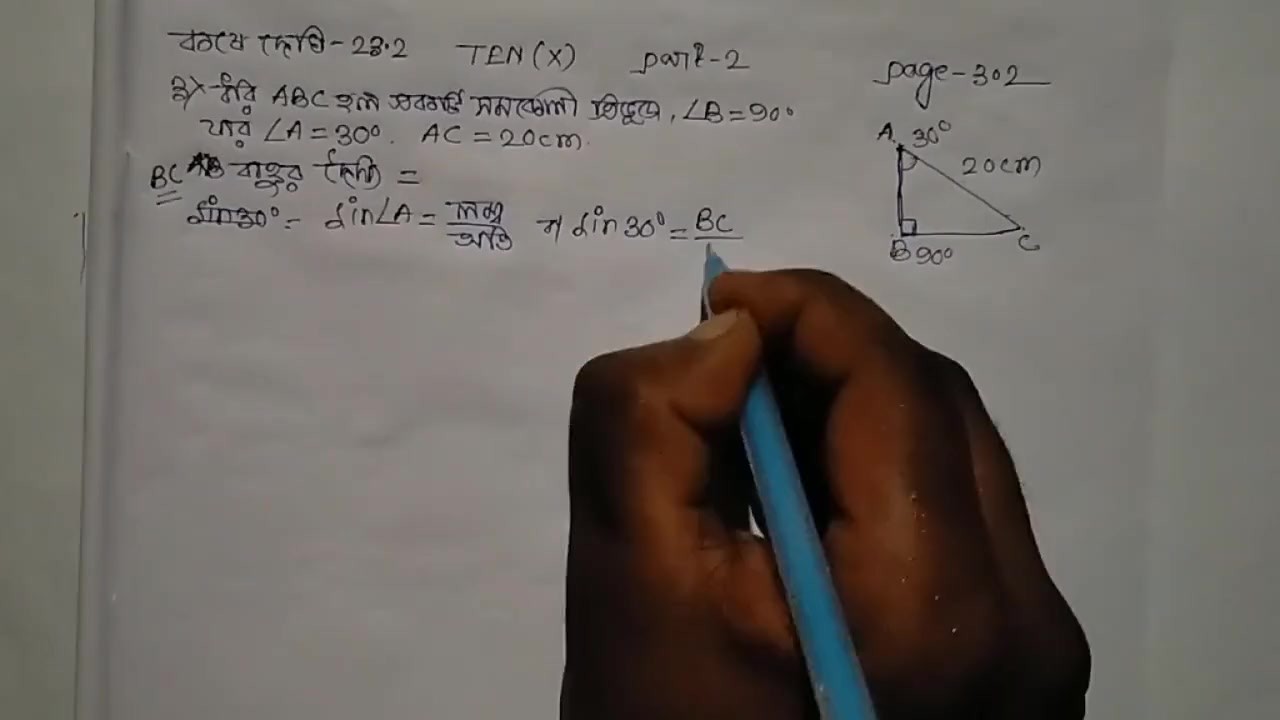 কষে দেখি-23.2 TEN(X) part-2
page-302
ধরি ABC হল একটি সমকোণী ত্রিভুজ, ∠B=90°
এবং ∠A=30°. AC=20cm.
BC বাহুর দৈর্ঘ্য =
sin30°= sin∠A = লম্ব/অতি ⇒ sin30°= BC
A 30°
20cm
B 90° C